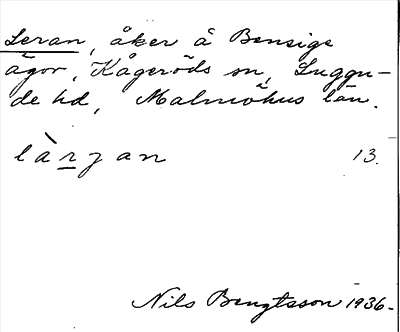 Leran, åker å Bensige
ägor, Kågeröds sn, Luggu-
de hd, Malmöhus län.
làrjan 13.
Nils Bengtsson 1936.